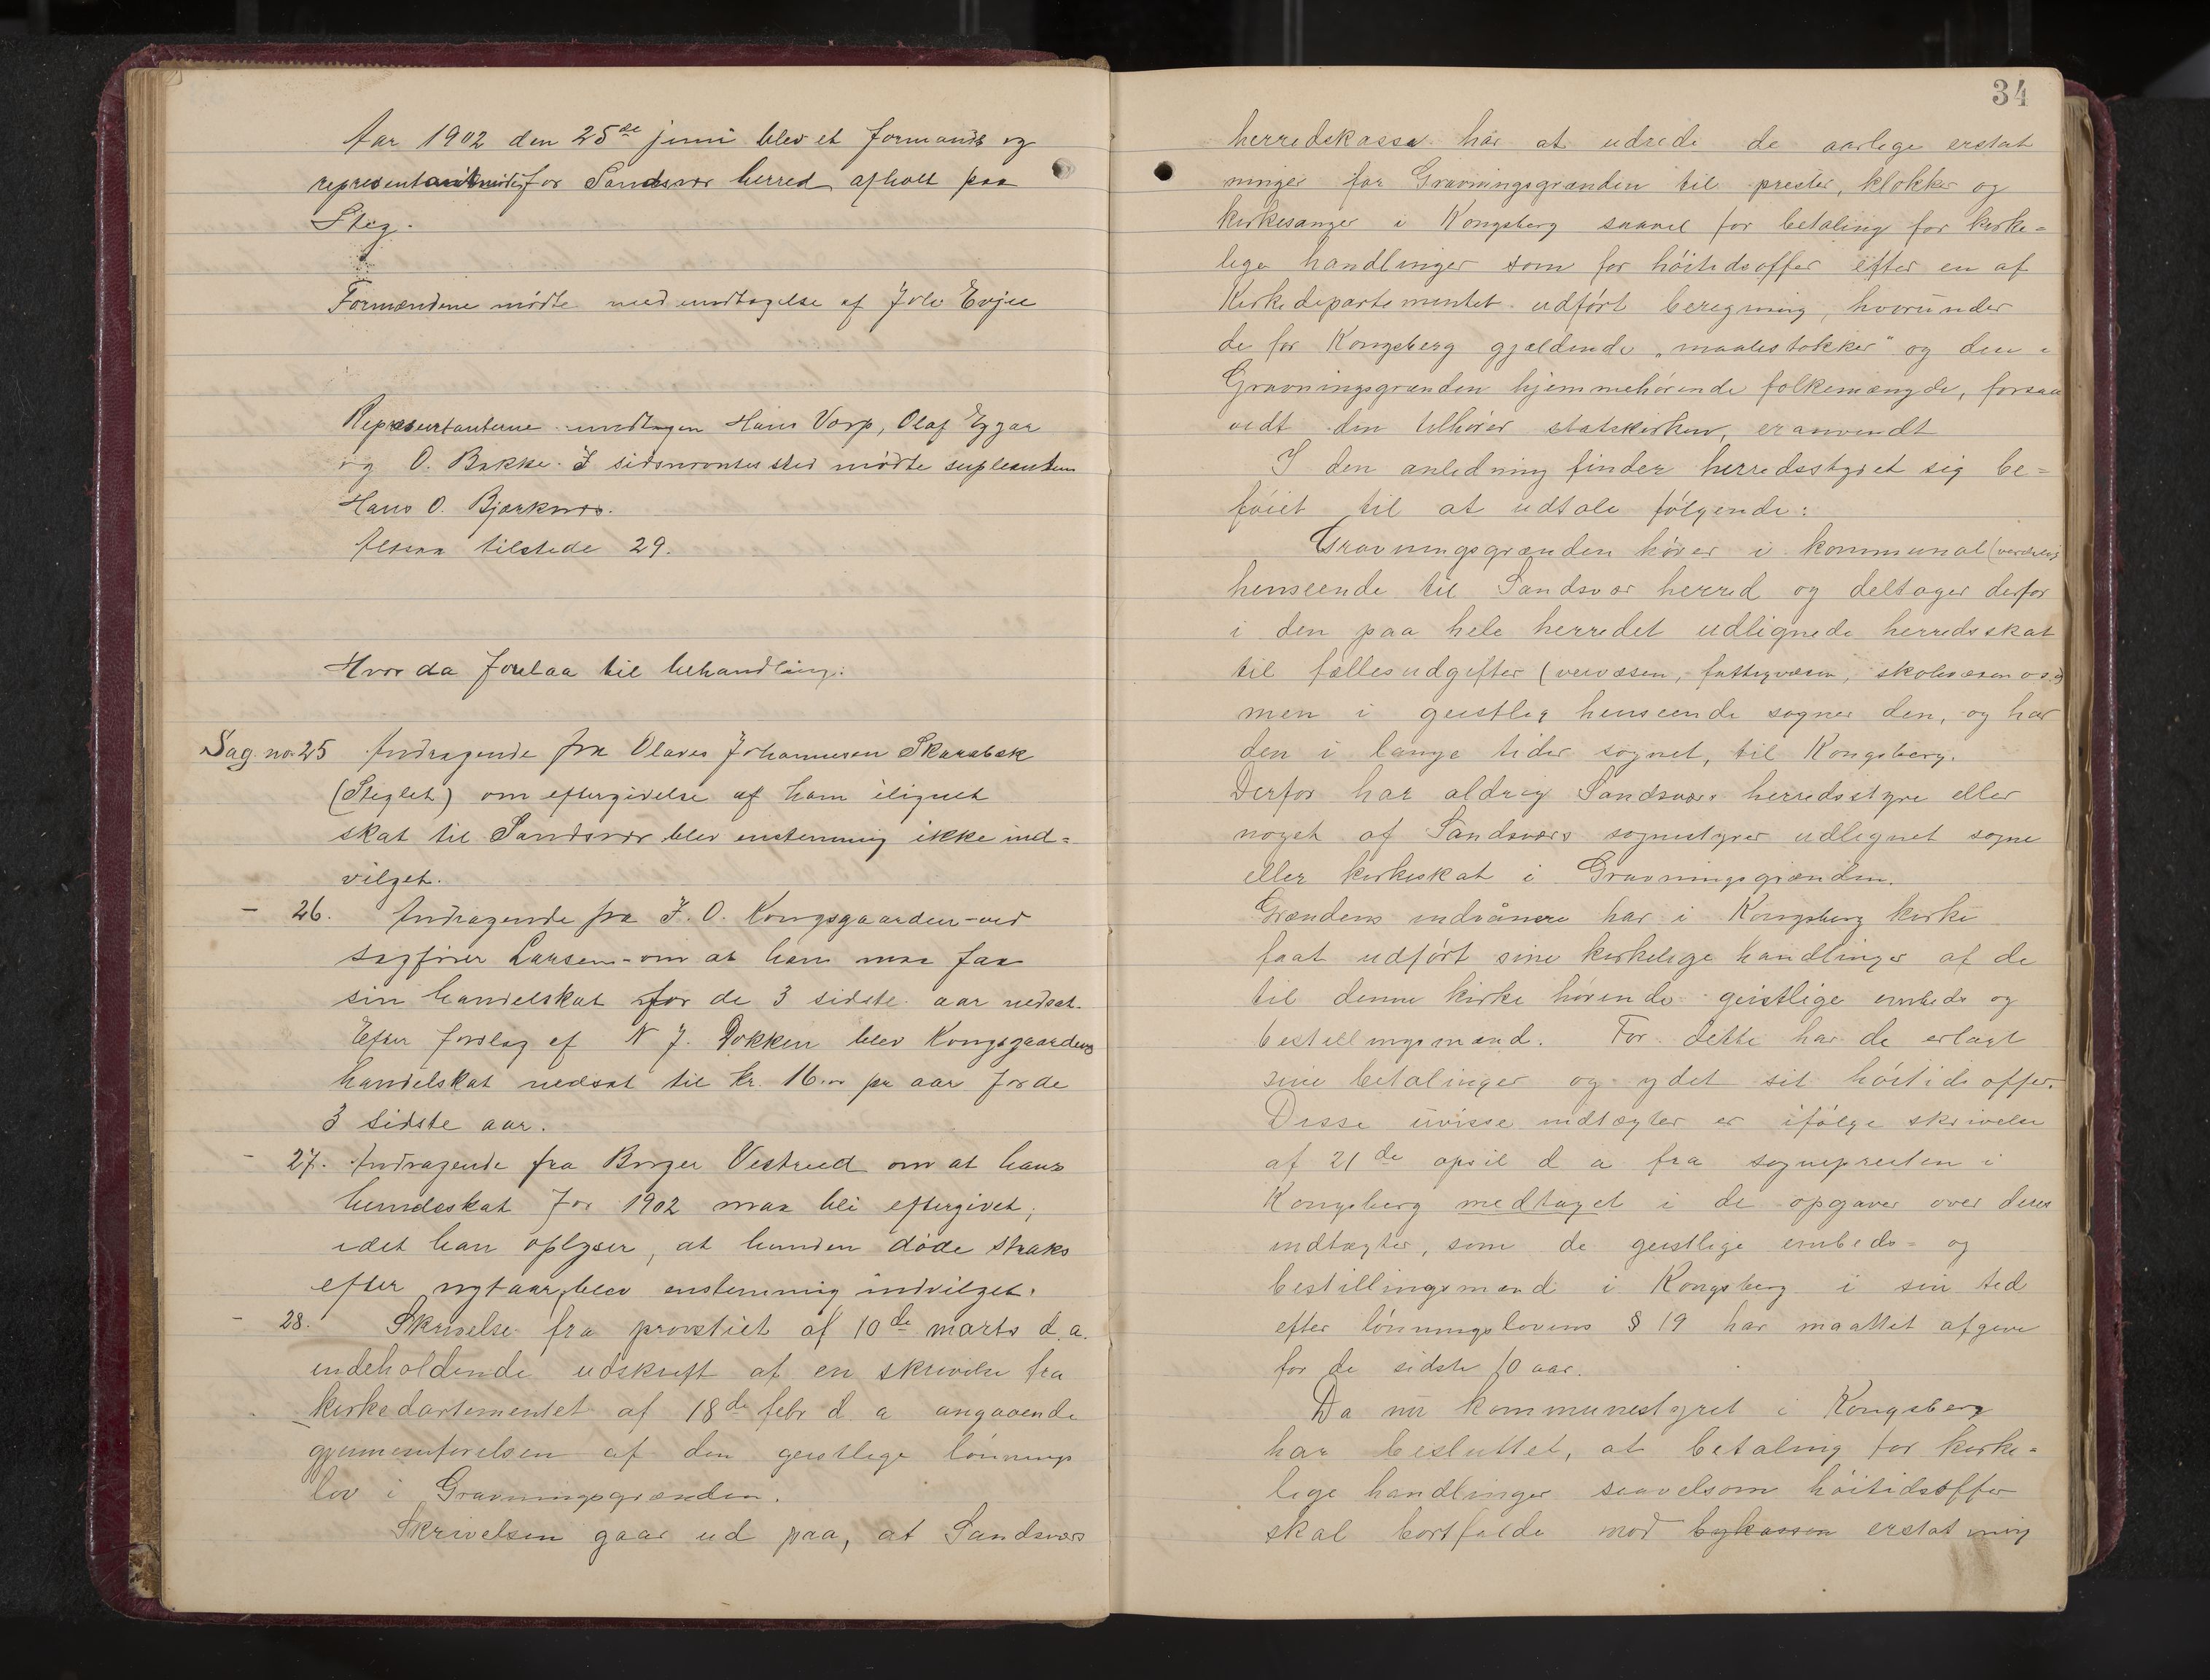 Aar 1902 den 25de juni blev et formands og
representantmøde for Sandsvær herred afholdt paa
Steg.
Formændene mødte med undtagelse af Jolv Evju
Representanterne undtagen Hans Vorp, Olaf Eggar
og O. Bakke. I sidsnevntes sted mødte suplenten
Hans O. Bjørknes.
Altsaa tilstede 29.
Hvor da forelaa til behandling:
Sag no. 25 Andragende fra Olaves Johannesen Skarabæk
(Steglet) om eftergivelse af ham ilignet
skat til Sandsvær blev enstemmig ikke ind=
vilget.
- 26. Andragende fra J. O. Kongsgaarden - ved
sagfører Larsen - om at han maa faa
sin handelskat for de 3 sidste aar nedsat.
Efter forslag af N J. Dokken blev Kongsgaardens
handelskat nedsat til kr. 16.00 pr aar for de
3 sidste aar.
- 27. Andragende fra Borger Vestreed om at hans
hundeskat for 1902 maa bli eftergivet,
idet han oplyser, at hunden døde straks
efter nytaar, blev enstemmig indvilget.
- 28. Skrivelse fra provstiet af 10de marts d. a.
indeholdende udskrift af en skrivelse fra
kirkedartementet af 18de febr d a angaaende
gjennemførelsen af den geistlige lønnings
lov i Gravningsgrænden.
Skrivelsen gaar ud paa, at Sandsværs
34
herredskasse har at udrede de aarlige erstat
ninger for Gravningsgrænden til prester, klokker og
kirkesanger i Kongsberg saavel for betaling for kirke=
lige handlinger som for høitidsoffer efter en af
Kirkedepartementet udført beregning, hvorunder
de for Kongsberg gjældende „maalestokker" og den i
Gravningsgrænden hjemmehørende folkemængde, forsaa
vidt den tilhører statskirken, er anvendt
I den anledning finder herredsstyret sig be=
føiet til at udtale følgende:
Gravningsgrænden hører i kommunal (verdslig)
henseende til Sandsvær herred og deltager derfor
i den paa hele herredet udlignede herredsskat
til fællesudgifter (veivæsen, fattigvæsen, skolevæsen o.s.v)
men i geistlig henseende sogner den, og har
den i lange tider sognet, til Kongsberg.
Derfor har aldrig Sandsværs herredsstyre eller
noget af Sandsværs sognestyrer udlignet sogne
eller kirkeskat i Gravningsgrænden.
Grændens indvånere har i Kongsberg kirke
faat udført sine kirkelige handlinger af de
til denne kirke hørende geistlige embeds og
bestillingsmænd. For dette har de erlagt
sine betalinger og ydet sit høitidsoffer.
Disse uvisse indtægter er ifølge skrivelse
af 21de april d a fra sognepresten i
Kongsberg medtaget i de opgaver over deres
indtægter, som de geistlige embeds= og
bestillingsmænd i Kongsberg i sin tid
efter lønningslovens § 19 har maattet afgive
for de sidste 10 aar.
Da nu kommunestyret i Kongsberg
har besluttet, at betaling for kirke=
lige handlinger saavelsom høitidsoffer
skal bortfalde mod bykassen erstatning